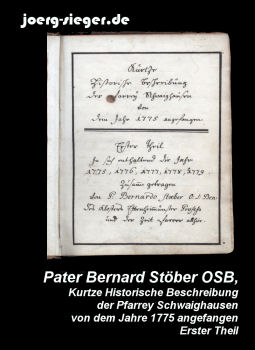 joerg-sieger.de
Kurtze
Historische Beschreibung
der Pfarrey Schwaighausen
von
dem Jahr 1775 angefangen
Erster Theil
In sich enthaltend die Jahr
1775, 1776, 1777, 1778, 1779.
Zusamm getragen
von P. Bernardo Stoeber O. S. Ben.
des Closters Ettenheimmünster
und der Zeit Pfarrer
Pater Bernard Stöber OSB,
Kurtze Historische Beschreibung
der Pfarrey Schwaighausen
von dem Jahre 1775 angefangen
Erster Theil